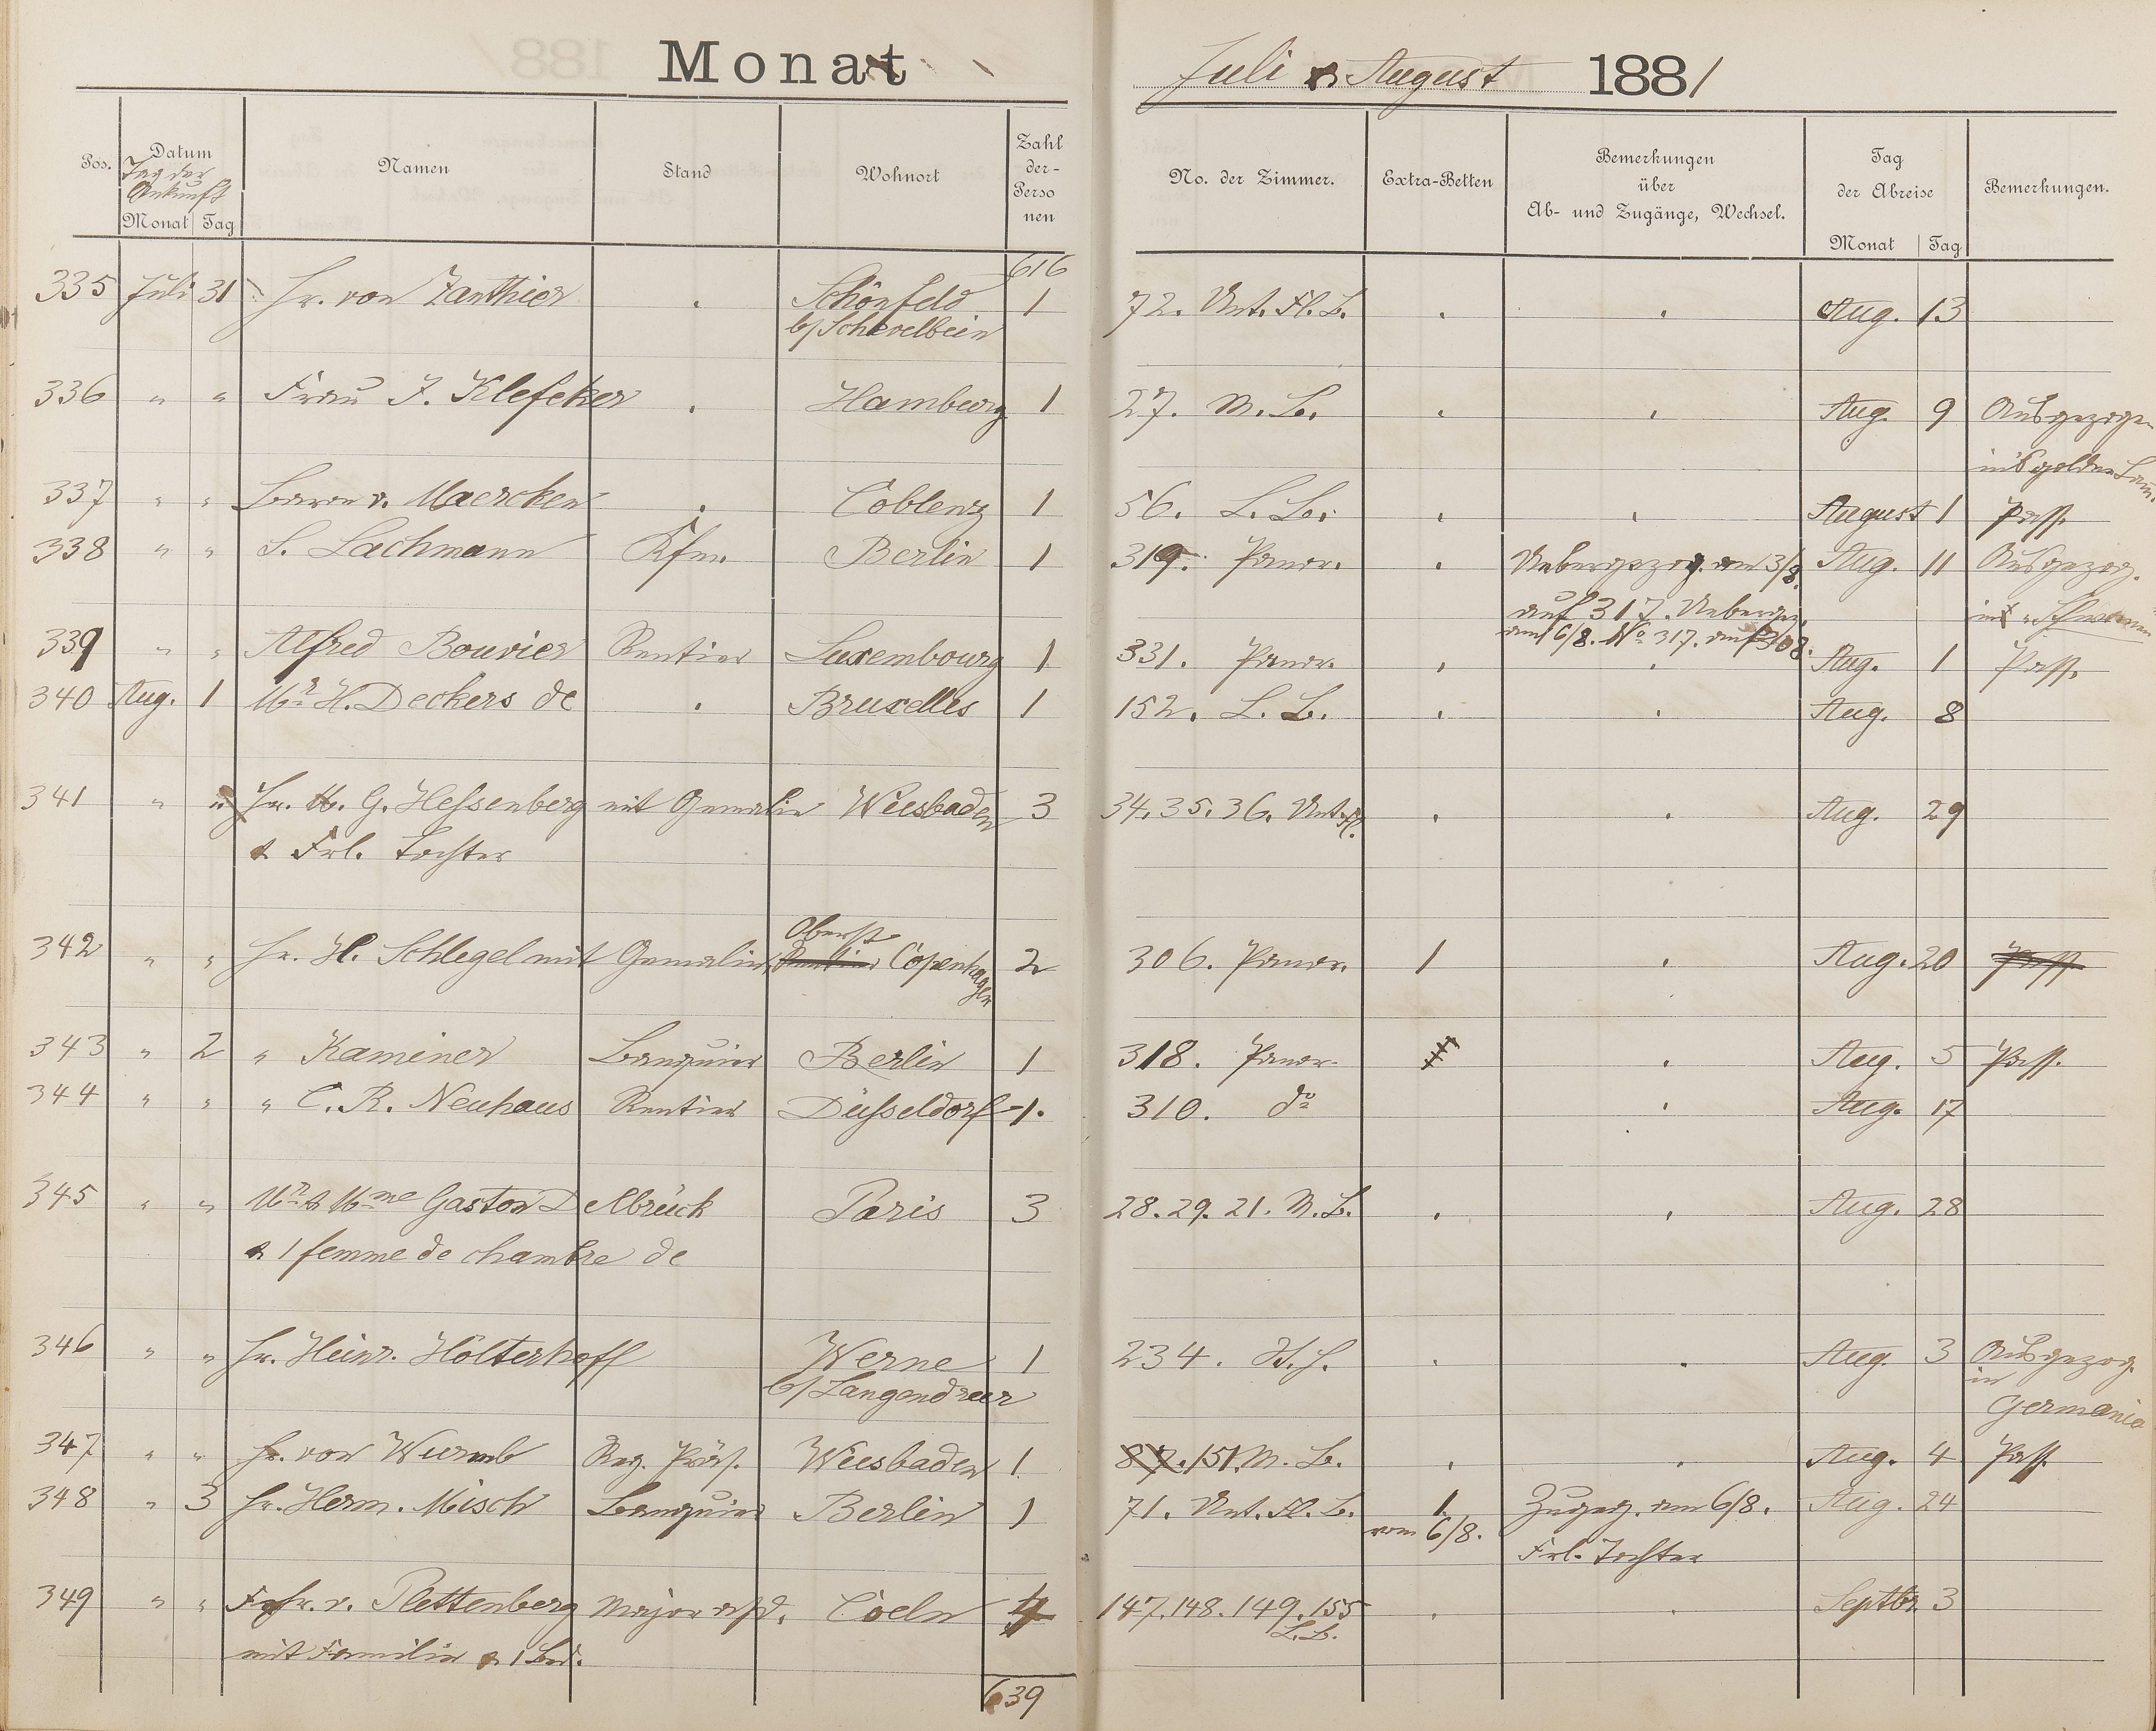 Monat
Juli & August 1881
Pos. Datum Namen Stand Wohnort Zahl der-Personen No. der Zimmer. Extra-Betten Bemerkungen über Ab- und Zugänge, Wechsel. Tag der Abreise Bemerkungen.
Tag der Ankunft
Monat Tag Monat Tag
616
335 Juli 31 Hr. von Zanthier Schönfeld 1 72. Unt. Fl. B. Aug. 13
b/ Schevelbein
336 " " Frau J. Klefeker Hamburg 1 27. M. B. Aug. 9 Ausgezogen
in's goldne
337 " " Baron v. Maercken Coblenz 1 56. L. B. August 1 Pass.
338 " " S. Lachmann Kfm. Berlin 1 319. Panor. Uebergezog. am 3/8. Aug. 11 Ausgezog.
auf 317. Ueberge. in's "Schwanen
am 6/8. No 317. auf 308.
339 " " Alfred Bouvier Rentier Luxembourg 1 331. Panor. Aug. 1 Pass.
340 Aug. 1 Mr. H. Deckers de Bruxelles 1 152. L. B. Aug. 8
341 " " Hr. G. Hessenberg mit Gemalin Wiesbaden 3 34. 35. 36. Unt. Fl. Aug. 29
& Frl. Tochter
Oberst
342 " " Hr. H. Schlegel mit Gemalin Rentier Copenhagen 2 306. Panor. 1 Aug. 20 Pass.
343 " 2 " Kaminer Banquier Berlin 1 318. Panor. Aug. 5 Pass.
344 " " " C. R. Neuhaus Rentier Düsseldorf 1. 310. do Aug. 17
345 " " Mr. & Mme Gaston Delbrück Paris 3 28. 29. 21. M. B. Aug. 28
& 1 femme de chambre de
346 " " Hr. Heinr. Hölterhoff Werne 1 234. Aug. 3 Ausgezog.
b/ Langendreer in
Germania
347 " " Hr. von Wurmb Reg. Präs. Wiesbaden 1 87. 151. M. B. Aug. 4 Pass.
348 " 3 Hr. Herm. Misch Banquier Berlin 1 71. Unt. Fl. B. 1 Zugez. am 6/8. Aug. 24
vom 6/8. Frl. Tochter
349 " " Frhr. v. Plettenberg Major a/D. Coeln 4 147. 148. 149. 155 Septbr. 3
L. B.
mit Familie & 1 Bed.
639